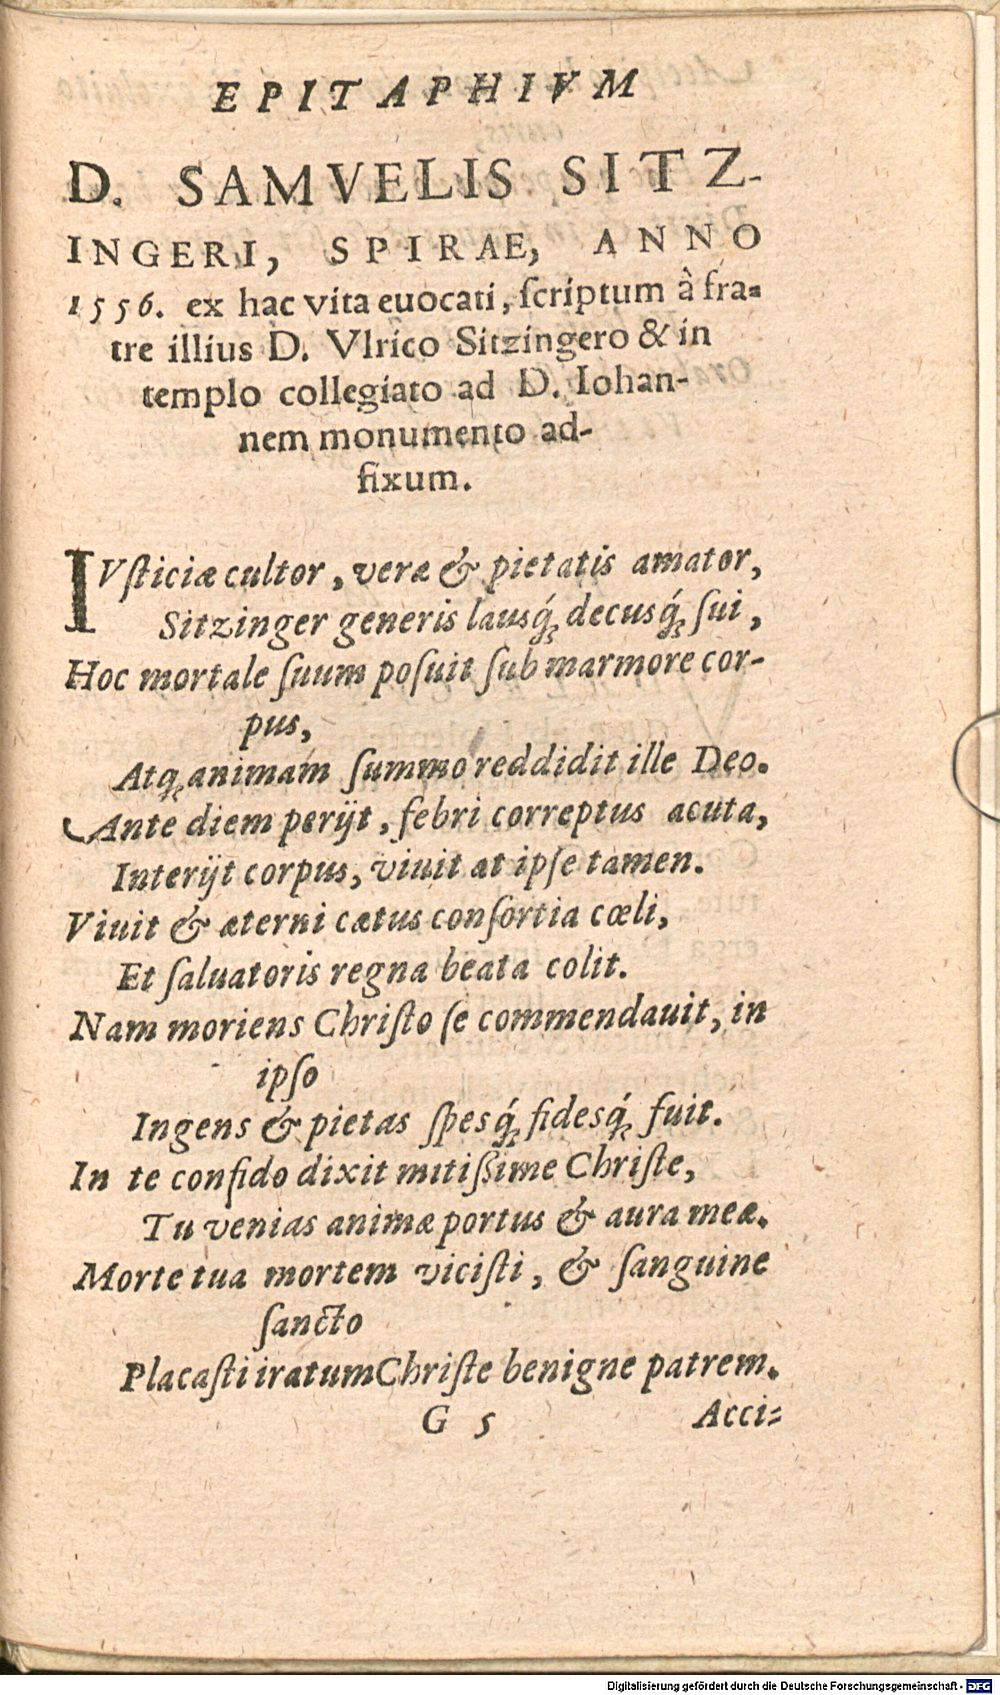 EPITAPHIVM
D. SAMVELIS SITZ-
INGERI, SPIRAE, ANNO
1556. ex hac vita euocati, ſcriptum à fra-
tre illius D. Vlrico Sitzingero & in
templo collegiato ad D. Iohan-
nem monumento ad-
fixum.
IVſticiæ cultor, veræ & pietatis amator,
Sitzinger generis lausq́; decusq́; ſui,
Hoc mortale ſuum poſuit ſub marmore cor-
pus,
Atq; animam ſummo reddidit ille Deo.
Ante diem perijt, febri correptus acuta,
Interijt corpus, viuit at ipſe tamen.
Viuit & æterni cætus conſortia cœli,
Et ſaluatoris regna beata colit.
Nam moriens Chriſto ſe commendauit, in
ipſo
Ingens & pietas ſpesq́; fidesq́; fuit.
In te confido dixit mitiſsime Chriſte,
Tu venias animæ portus & aura meæ.
Morte tua mortem viciſti, & ſanguine
ſancto
Placaſti iratum Chriſte benigne patrem.
G 5 Acci-
Digitalisierung gefördert durch die Deutsche Forschungsgemeinschaft - DFG